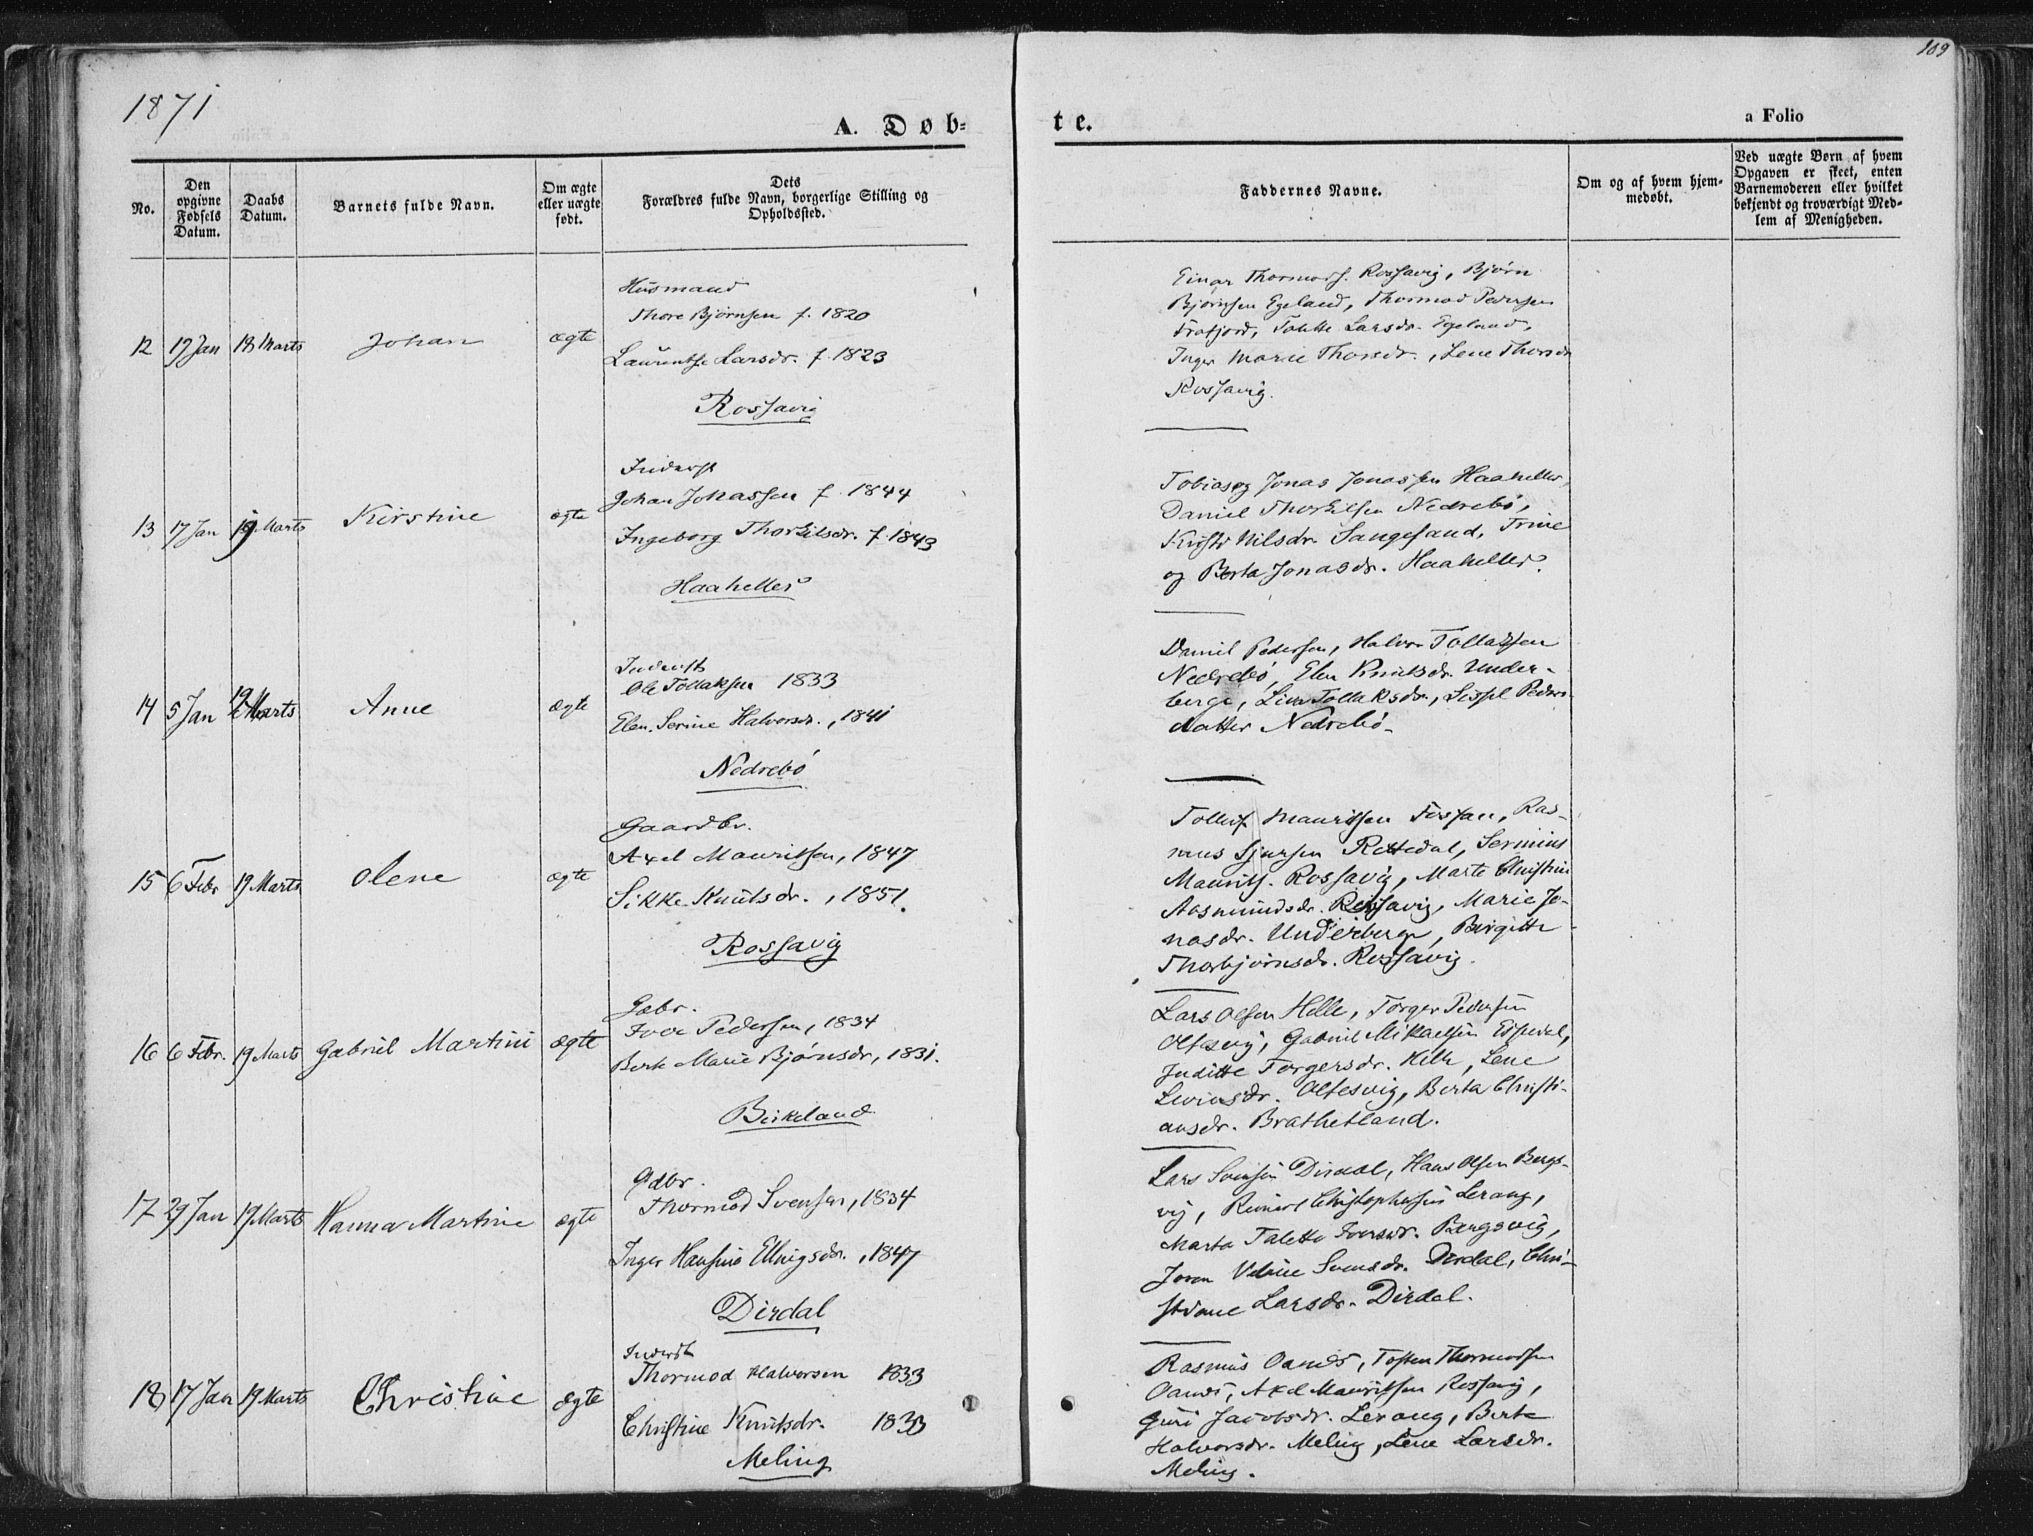 109
1871
A. Døb-
te.
a Folio
No.
Den opgivne Fødsels Datum.
Daabs Datum.
Barnets fulde Navn.
Om ægte eller uægte født.
Dets Forældres fulde Navn, borgerlige Stilling og Opholdssted.
Faddernes Navne.
Om og af hvem hjemmedøbt.
Ved uægte Børn af hvem Opgaven er skeet, enten Barnemoderen eller hvilket bekjendt og troværdigt Medlem af Menigheden.
12 17 Jan 18 Marts Johan ægte
Husmand
Thore Bjørnsen f. 1820
Larsdr. f. 1823
Rossavig
Einar Thormods. Rossavig, Bjørn
Bjørnsen Egeland, Thormod Pedersen
Frafjord, Larsdr. Egeland,
Inger Marie Thorsdr., Lene Thorsdr
Rossavig.
13 17 Jan 19 Marts Kirstine ægte
Inderst
Johan Jonassen f. 1844
Ingeborg Thorkilsdr. f. 1843
Haaheller
Tobias og Jonas Jonassen Haaheller,
Daniel Thorkilsen Nedrebø,
Nilsdr. Sangesand, Trine
og Berta Jonasdr. Haaheller.
14 5 Jan 19 Marts Anne ægte
Inderst
Ole Tollaksen 1833
Elen Serine Halvorsdr., 1841
Nedrebø
Daniel Pedersen, Halvor Tollaksen
Nedrebø, Elen Knutsdr. Under-
berge, Lina Tollaksdr., Sissel Peders-
datter Nedrebø.
15 6 Febr 19 Marts Olene ægte
Gaardbr.
Axel Mauritsen, 1847
Sikke Knutsdr., 1851.
Rossavig
Tollef Mauritsen Fossan, Ras-
mus Sjursen Rettedal, Serinius
Maurits. Rossavig, Marte Christine
Aasmundsdr. Rossavig, Marie Jo-
nasdr. Underberge, Birgitte
Thorbjørnsdr. Rossavig.
16 6 Febr. 19 Marts Gabriel Martin ægte
Gabr.
Iver Pedersen, 1834
Berte Marie Bjørnsdr, 1831.
Birkeland
Lars Olsen Helle, Torger Pedersen
Oltesvig, Gabriel Mikaelsen Espedal,
Juditte Torgersdr. Helle, Lene
Oltesvig, Berta Christi-
ansdr. Brathetland.
17 29 Jan 19 Marts Hanna Martine ægte
Gdbr.
Thormod Svensen, 1834
Inger Hansine Ellingsdr., 1847
Dirdal
Lars Svensen Dirdal, Hans Olsen Bergs-
vig, Reinert Christophersen Lerang,
Marta Taletta Iversdr. Bergsvig,
Joren Svensdr. Dirdal, Chri-
stiane Larsdr. Dirdal.
18 17 Jan 19 Marts Christine ægte
Inderst
Thormod Halvorsen 1833
Christine Knutsdr. 1833
Meling
Rasmus Oanes, Tosten Thormodsen
Oanes, Axel Mauritsen Rossavig,
Guri Jacobsdr. Lerang, Berte
Halvorsdr. Meling, Lene Larsdr.
Meling.